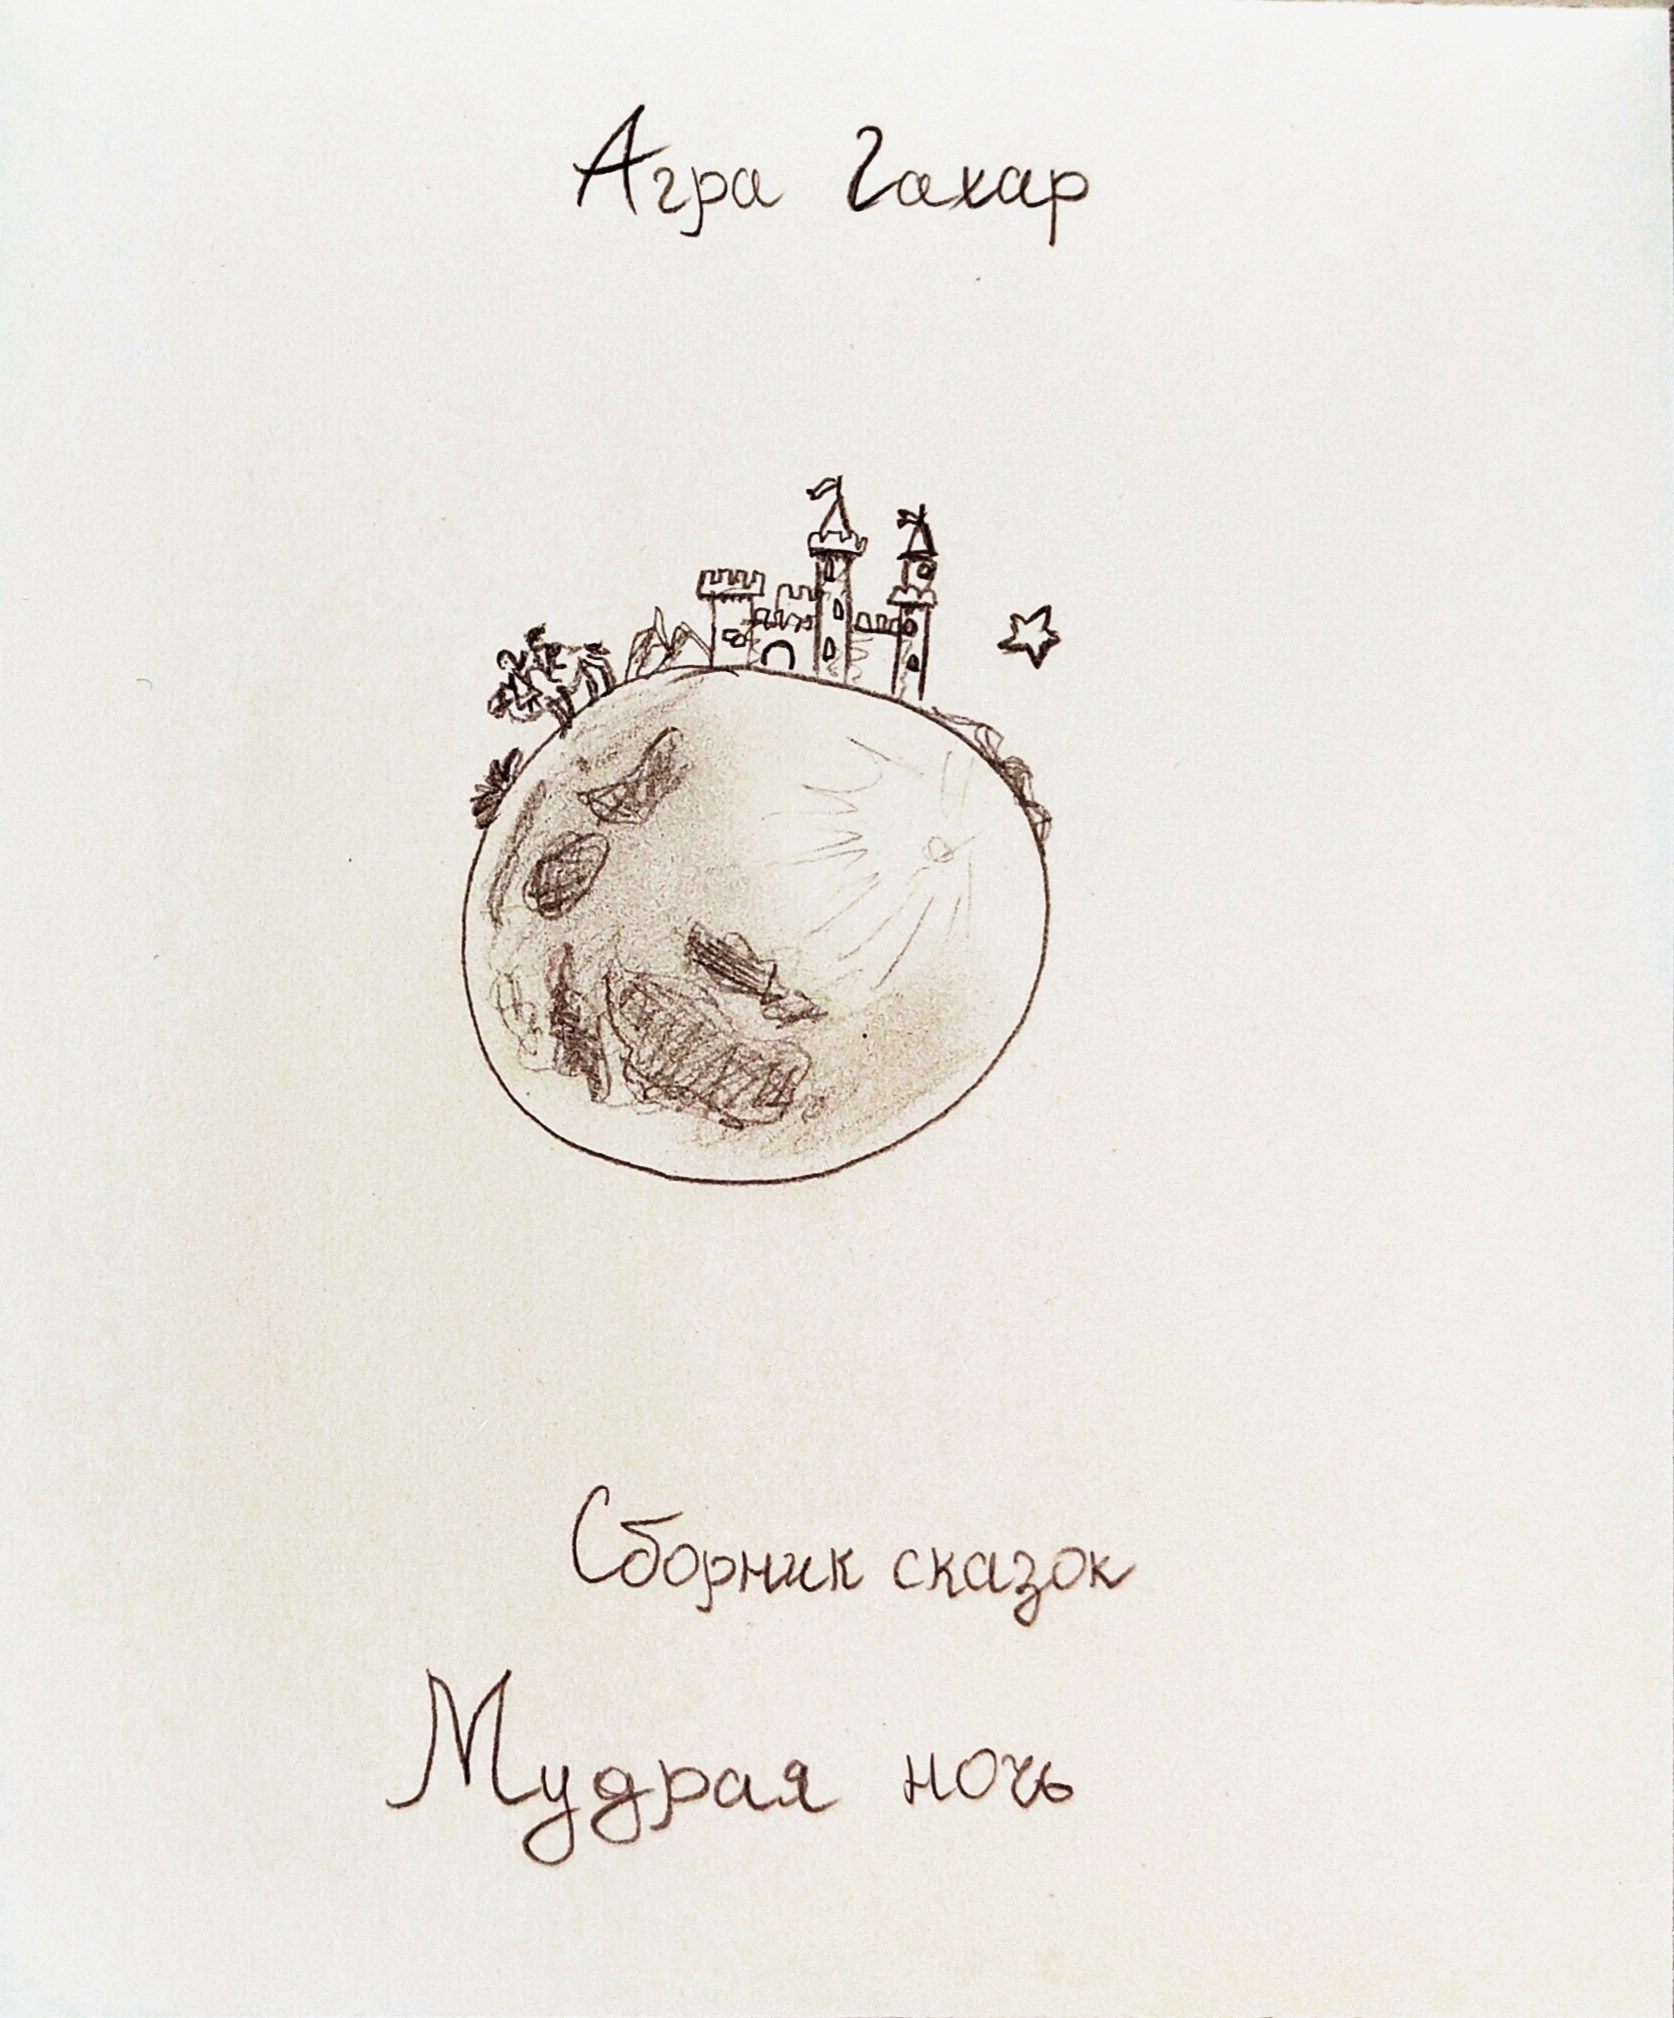 Агра Гахар
Сборник сказок
Мудрая ночь